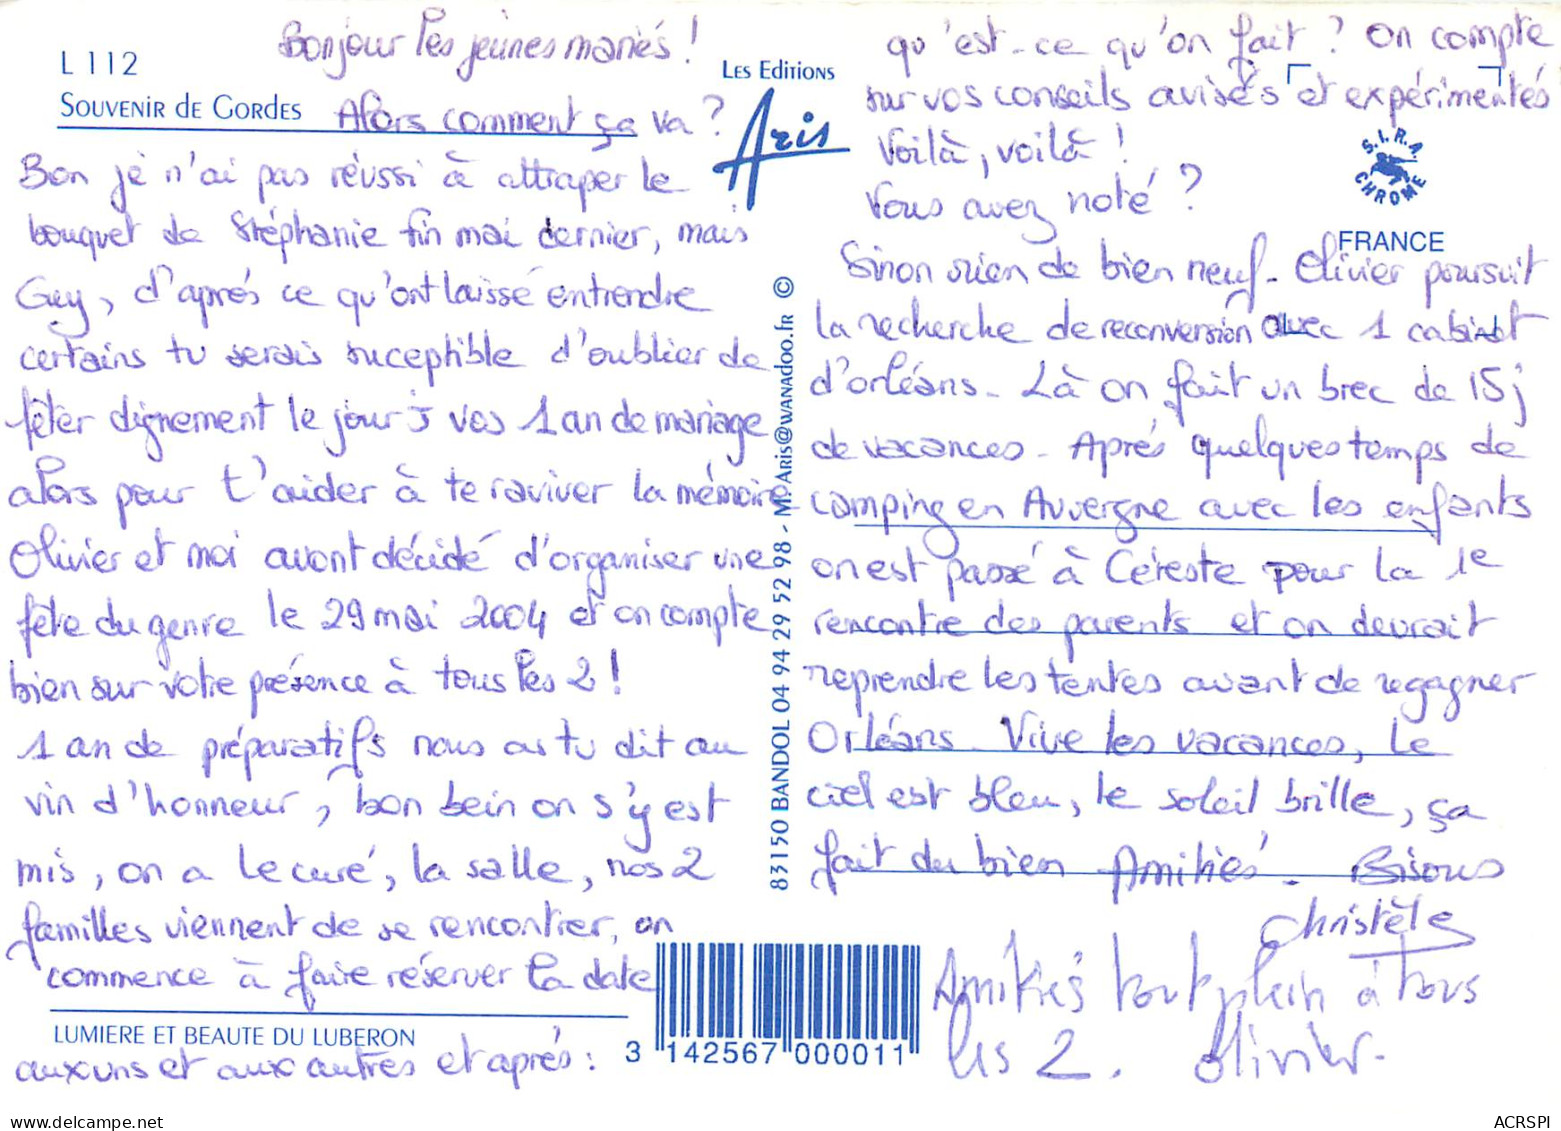 L 112
SOUVENIR DE GORDES
Bonjour les jeunes mariés !
Alors comment ça va ?
Bon je n'ai pas réussi à attraper le
bouquet de Stéphanie fin mai dernier, mais
Guy, d'après ce qu'ont laissé entrendre
certains tu serais suceptible d'oublier de
fêter dignement le jour J vos 1 an de mariage
alors pour t'aider à te raviver la mémoire
Olivier et moi avont décidé d'organiser une
fête du genre le 29 mai 2004 et on compte
bien sur votre présence à tous les 2 !
1 an de préparatifs nous as tu dit au
vin d'honneur, bon bein on s'y est
mis, on a le curé, la salle, nos 2
familles viennent de se rencontrer, on
commence à faire réserver la date
LUMIERE ET BEAUTE DU LUBERON
aux uns et aux autres et après :
LES EDITIONS
Aris
83150 BANDOL 04 94 29 52 98 - M. ARIS@WANADOO.FR ©
3 142567 000011
qu'est-ce qu'on fait ? On compte
sur vos conseils avisés et expérimentés
Voilà, voilà !
Vous avez noté ?
S.I.R.A.
CHROME
FRANCE
Sinon rien de bien neuf. Olivier poursuit
la recherche de reconversion avec 1 cabinet
d'orléans. Là on fait un brec de 15j
de vacances. Après quelques temps de
camping en Auvergne avec les enfants
on est passé à Céreste pour la 1e
rencontre des parents et on devrait
reprendre les tentes avant de regagner
Orléans. Vive les vacances, le
ciel est bleu, le soleil brille, ça
fait du bien Amitiés. Bisous
Christèle
Amitiés tout plein à tous
les 2. Olivier.
ACRSPI